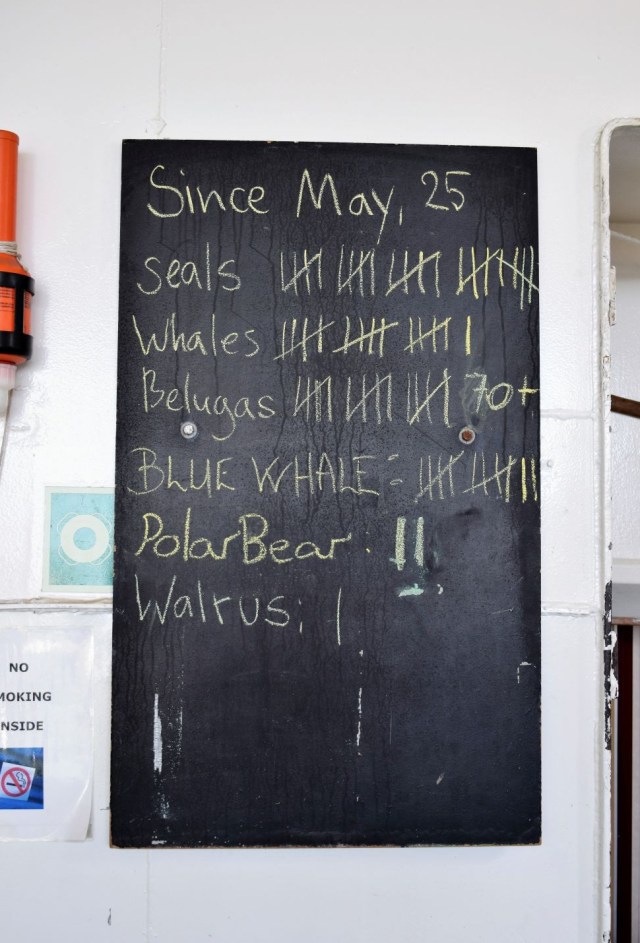 Since May, 25
seals 卌 卌 卌 卌 卌
Whales 卌 卌 卌 |
Belugas 卌 卌 卌 70+
BLUE WHALE: 卌 卌 ||
Polar Bear: ||
Walrus: |
NO
MOKING
NSIDE